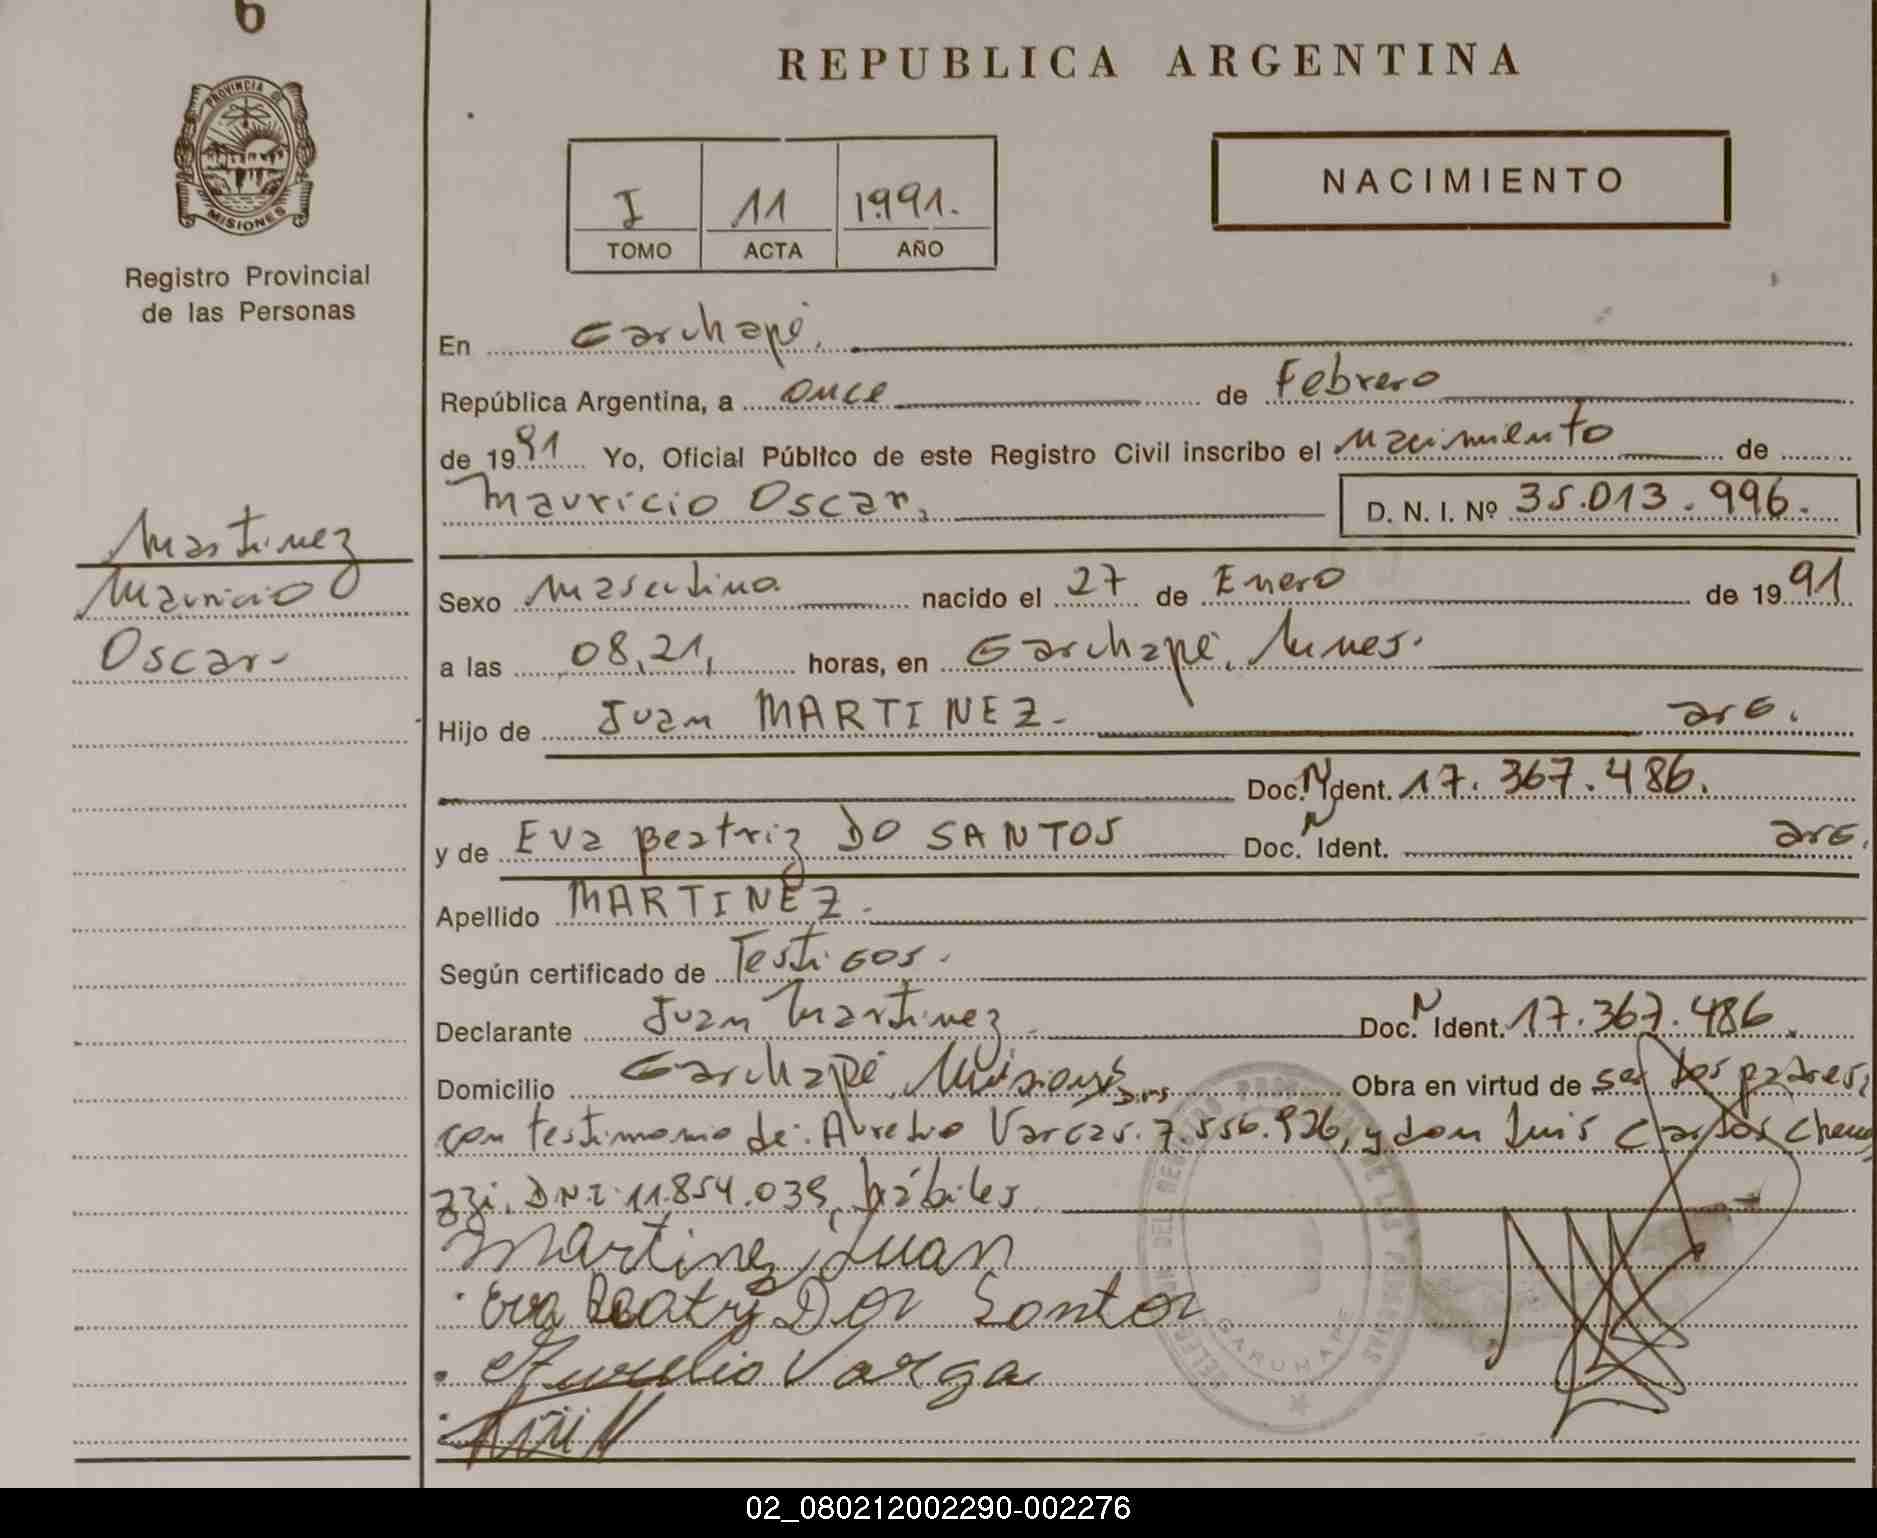 6
PROVINCIA DE
MISIONES
Registro Provincial
de las Personas
Martinez
Mauricio
Oscar-
REPUBLICA ARGENTINA
I 11 1991.
TOMO ACTA AÑO
NACIMIENTO
En Garuhapé.
República Argentina, a once de Febrero
de 1991 Yo, Oficial Público de este Registro Civil inscribo el nacimiento de
Mauricio Oscar, D. N. I. Nº 35.013.996.
Sexo masculino nacido el 27 de Enero de 1991
a las 08,21, horas, en Garuhapé, Mnes.
Hijo de Juan MARTINEZ- arg.
Doc. N Ident. 17.367.486.
y de Eva Beatriz DO SANTOS Doc. N Ident. arg.
Apellido MARTINEZ-
Según certificado de Testigos.
Declarante Juan Martinez Doc. N Ident. 17.367.486.
Domicilio Garuhapé, Misiones Obra en virtud de ser los padres,
con testimonio de: Aurelio Vargas. 7.556.926, y don Luis Carlos
DNI. 11.854.039, hábiles
Martinez Juan
Eva Beatriz Dos Santos
Aurelio Varga
GARUHAPE
02_080212002290-002276